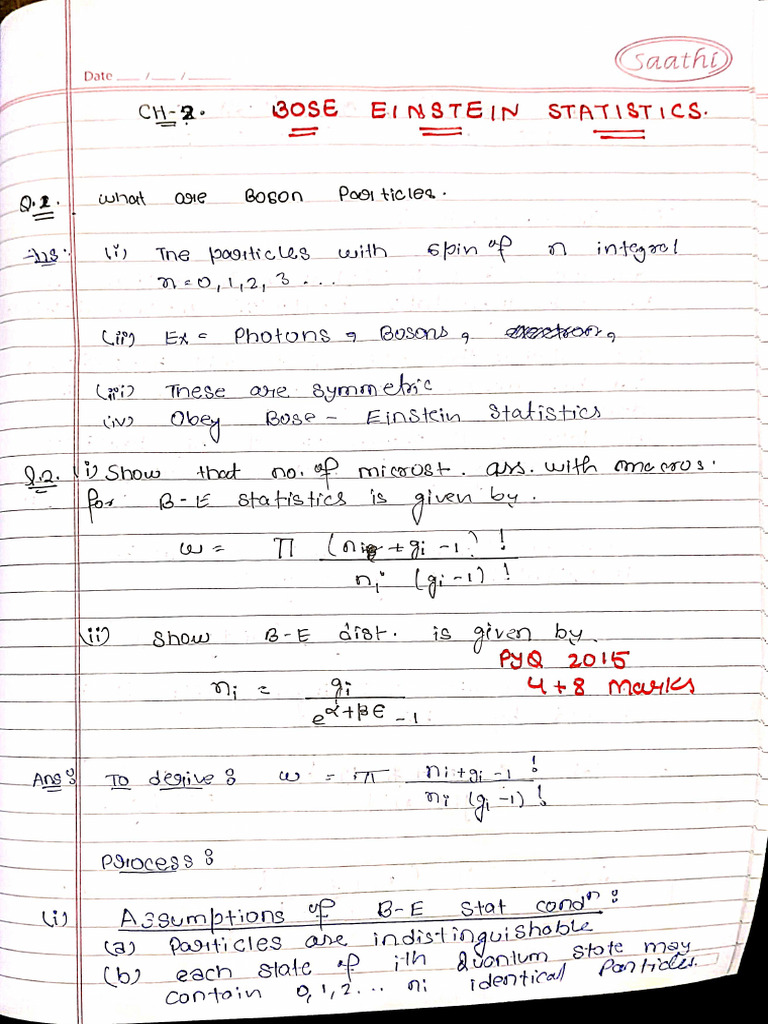 Saathi
Date ___/___/___
CH-2. BOSE EINSTEIN STATISTICS.
Q.1. What are Boson Particles.
Ans: (i) The particles with spin of n integral
n=0,1,2,3...
(ii) Ex = Photons, Bosons,
(iii) These are symmetric
(iv) Obey Bose - Einstein Statistics
Q.2. (i) Show that no. of microst. ass. with macros.
for B-E statistics is given by.
w = π (ni + gi -1)! / ni (gi -1)!
(ii) Show B-E dist. is given by.
PYQ 2015
ni = gi / e^α+βE -1
4+8 Marks
Ans: To derive: w = π ni+gi-1! / ni (gi-1)!
Process:
(i) Assumptions of B-E stat condn:
(a) Particles are indistinguishable
(b) each state of ith Quantum state may
contain 0,1,2... ni identical Particles.